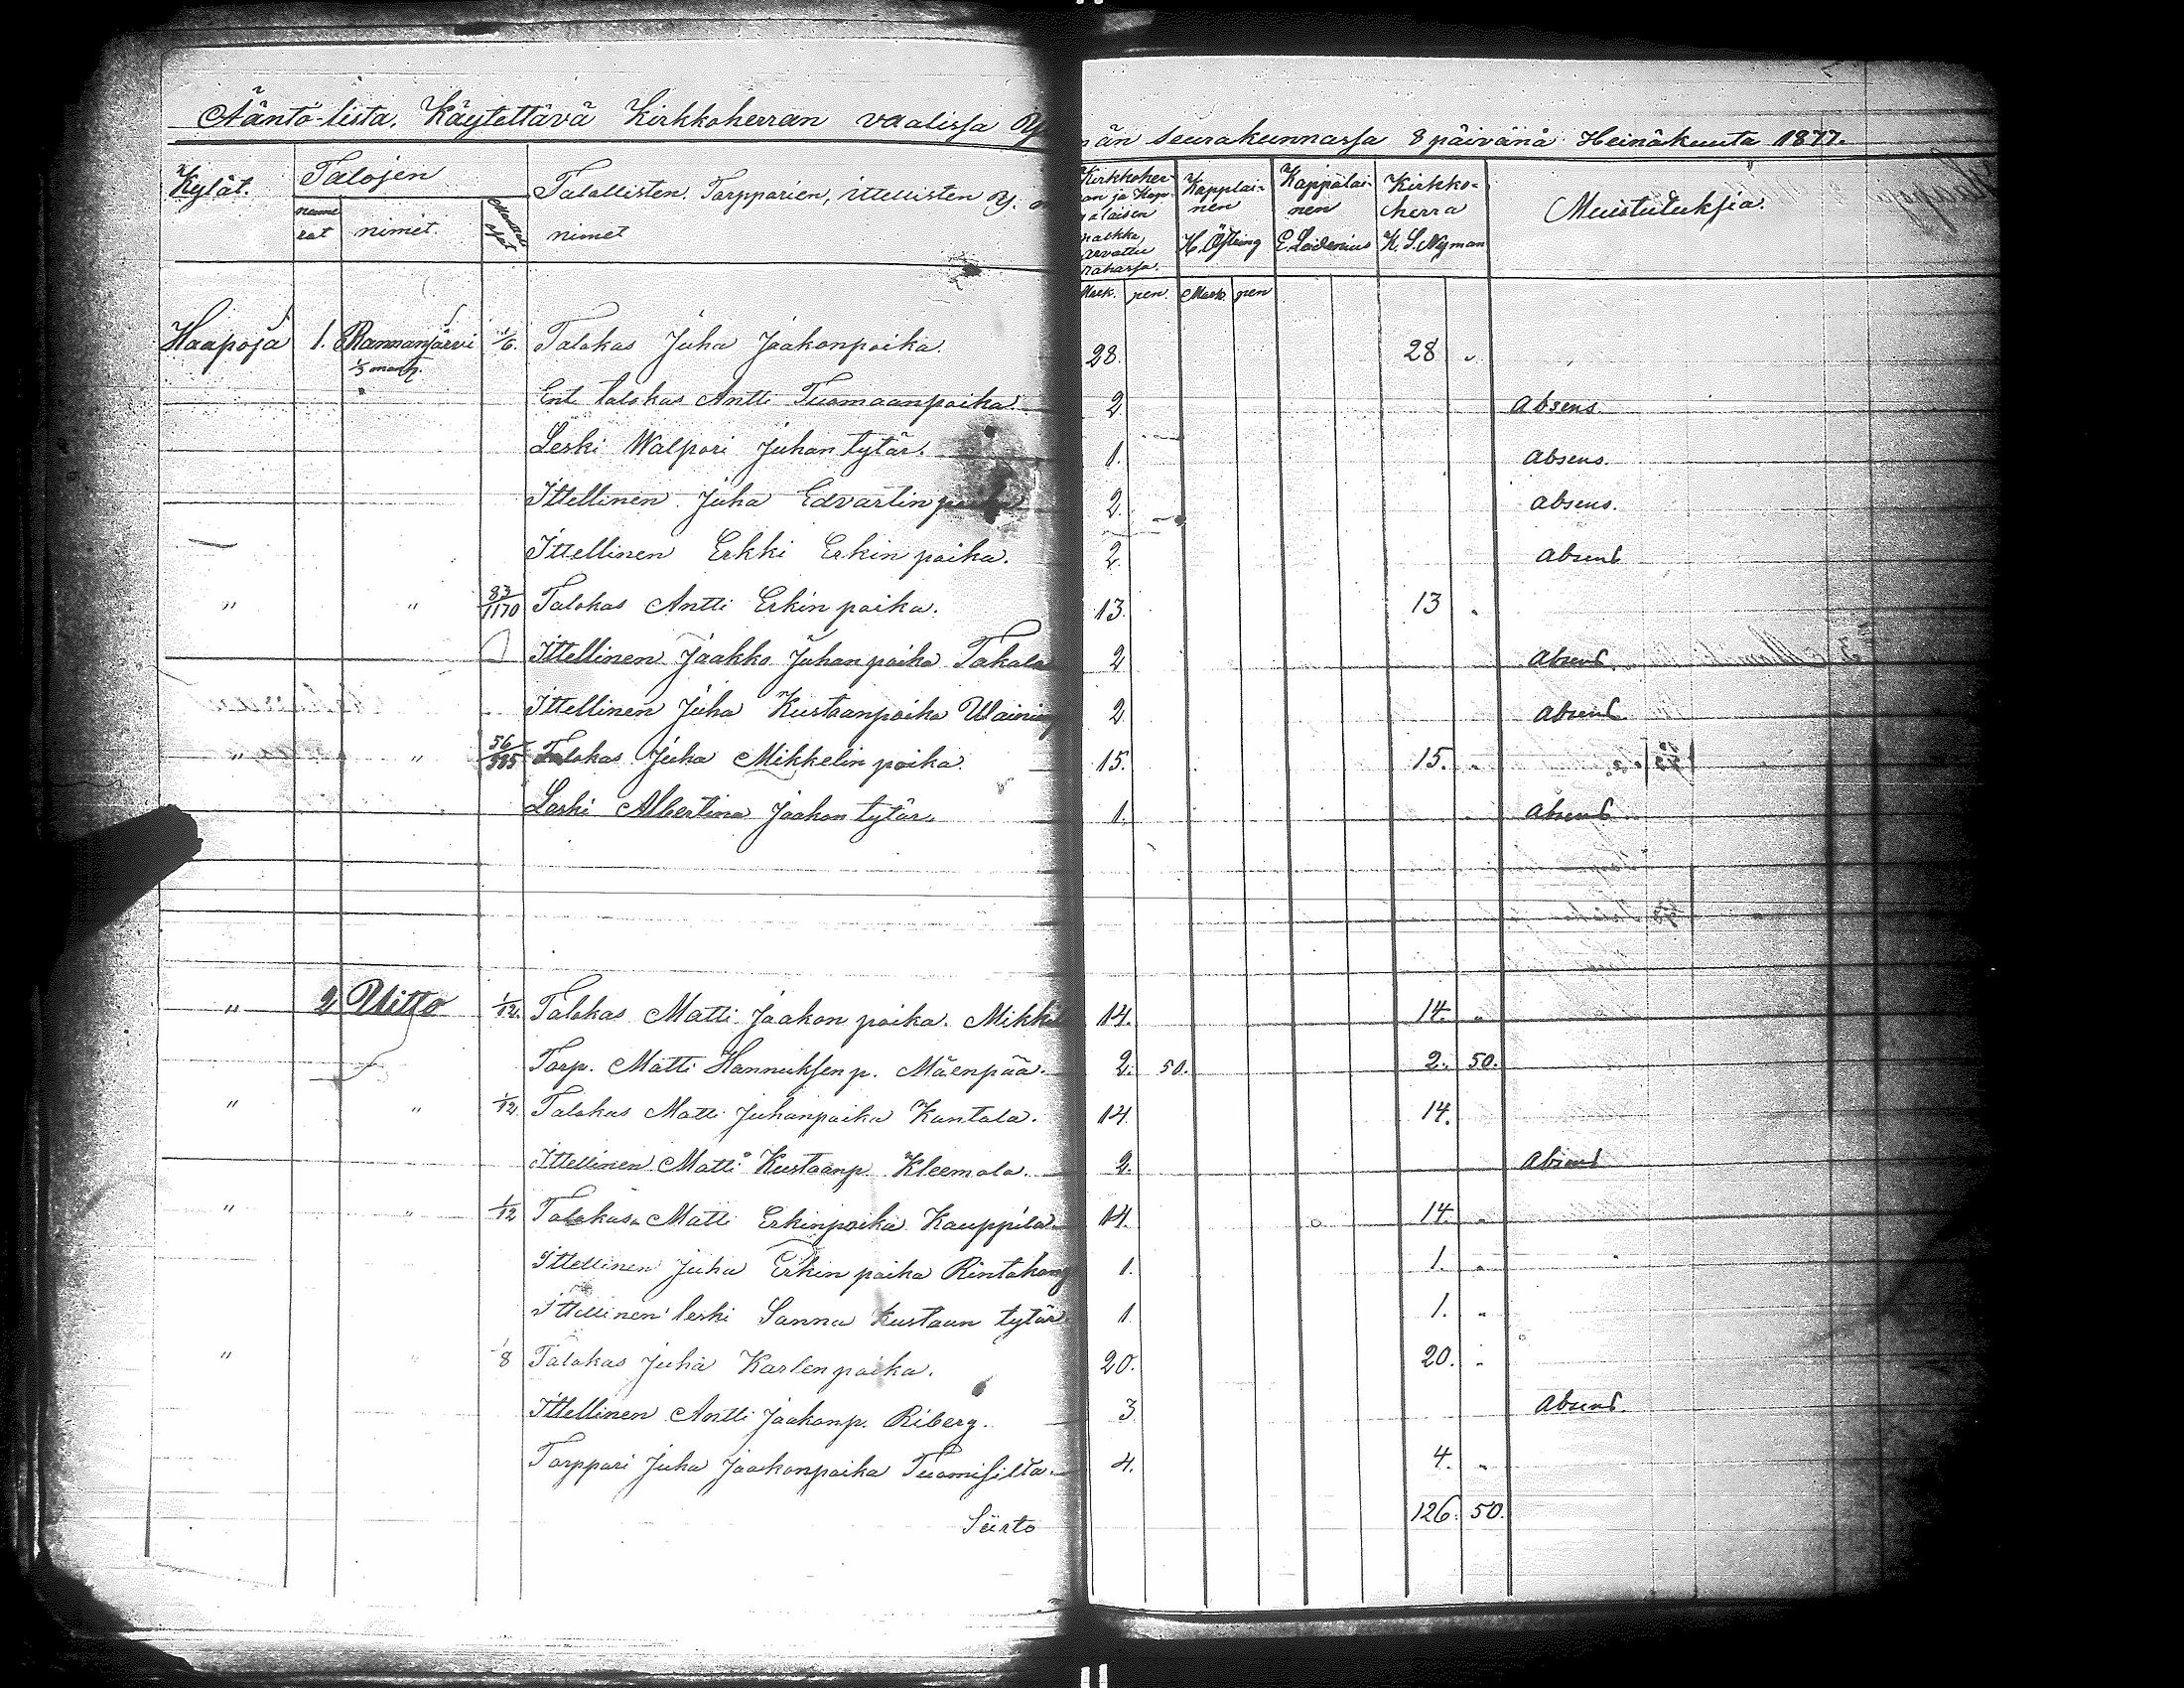 Ääntö-lista, Käytettävä Kirkkoherran vaalissa
än seurakunnassa 8 päivänä Heinäkuuta 1877.
Kylät. Talojen Talollisten, Torpparien, ittellisten y.
nume rot nimet. nimet
Kirkkoher- an ja Kap- alaisen palkka, arvattu rahassa. Kapplai- nen H. Kappalai- nen E. Kirkko- herra K. S. Nyman Muistutuksia.
Mark. pen. Mark. pen
Haapoja 1. Rannanjärvi 1/6. Talokas Juha Jaakonpoika. 28. 28 "
1/3 mant.
Ent. talokas Antti Tuomaanpoika. 2 Absens.
Leski Walpori Juhantytär. 1. Absens.
Ittellinen Juha Edvartin poika 2. Absens.
Ittellinen Erkki Erkin poika. 2. Absens
" " 83/1170 Talokas Antti Erkin poika. 13. 13 "
Ittellinen Jaakko Juhanpoika Takala 2 Absens.
Ittellinen Juha Kustaanpoika 2 Absens
" " 56/585 Talokas Juha Mikkelin poika. 15. 15. "
Leski Albertina Jaakon tytär. 1. Absens
" 2 Uitto 1/12. Talokas Matti Jaakon poika. 14. 14. "
Torp. Matti Hannuksen p. Mäenpää. 2. 50. 2. 50.
" " 1/12 Talokas Matti Juhanpoika Kantala. 14. 14.
Ittellinen Matti Kustaanp. Kleemola. 2. Absens
" " 1/12 Talokas Matti Erkinpoika Kauppila. 14. 14. "
Ittellinen Juha Erkin poika 1. 1. "
Ittellinen leski Sanna Kustaan tytär 1 1. "
" " 1/8 Talokas Juha Karlen poika. 20. 20. "
Ittellinen Antti Jaakonp. Riberg. 3 Absens.
Torppari Juha Jaakonpoika Tuomisilta. 4. 4. "
Siirto 126. 50.